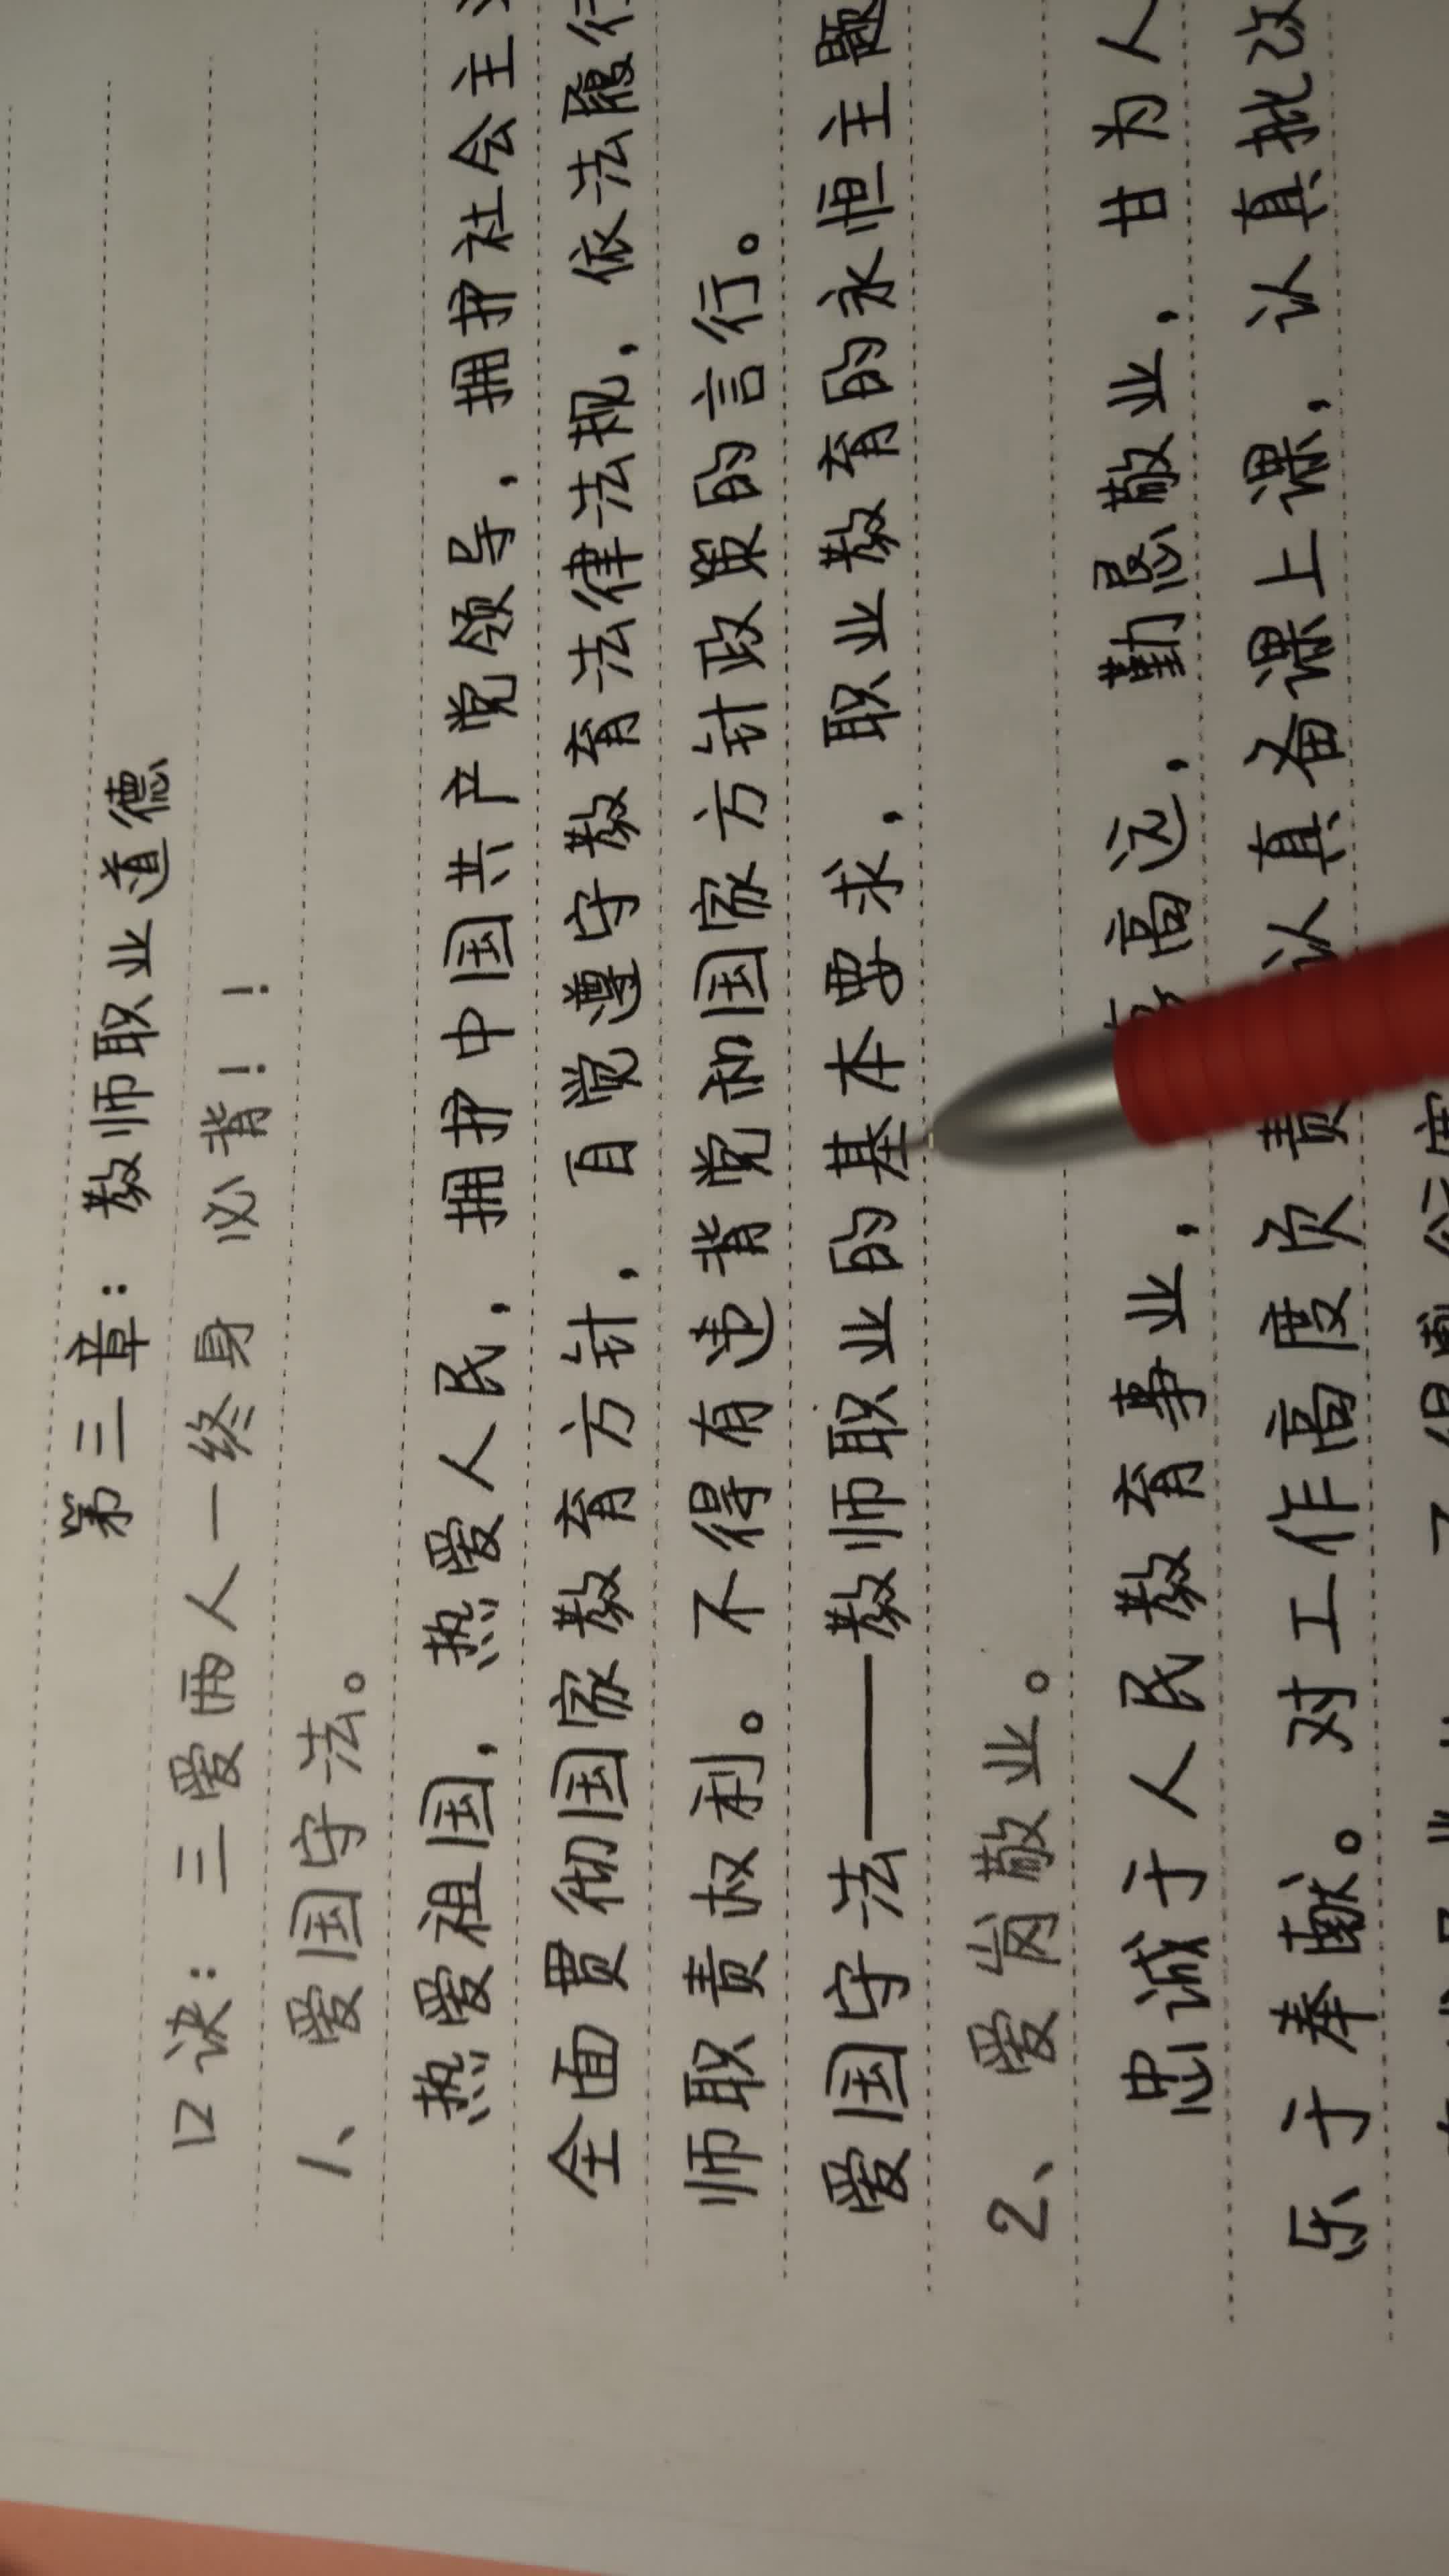 第三章：教师职业道德
口诀：三爱两人一终身 必背！！
1、爱国守法。
热爱祖国，热爱人民，拥护中国共产党领导，拥护社会主
全面贯彻国家教育方针，自觉遵守教育法律法规，依法履行
师职责权利。不得有违背党和国家方针政策的言行。
爱国守法——教师职业的基本要求，职业教育的永恒主题
2、爱岗敬业。
忠诚于人民教育事业，高远，勤恳敬业，甘为人
乐于奉献。对工作高度负责 认真备课上课，认真批改